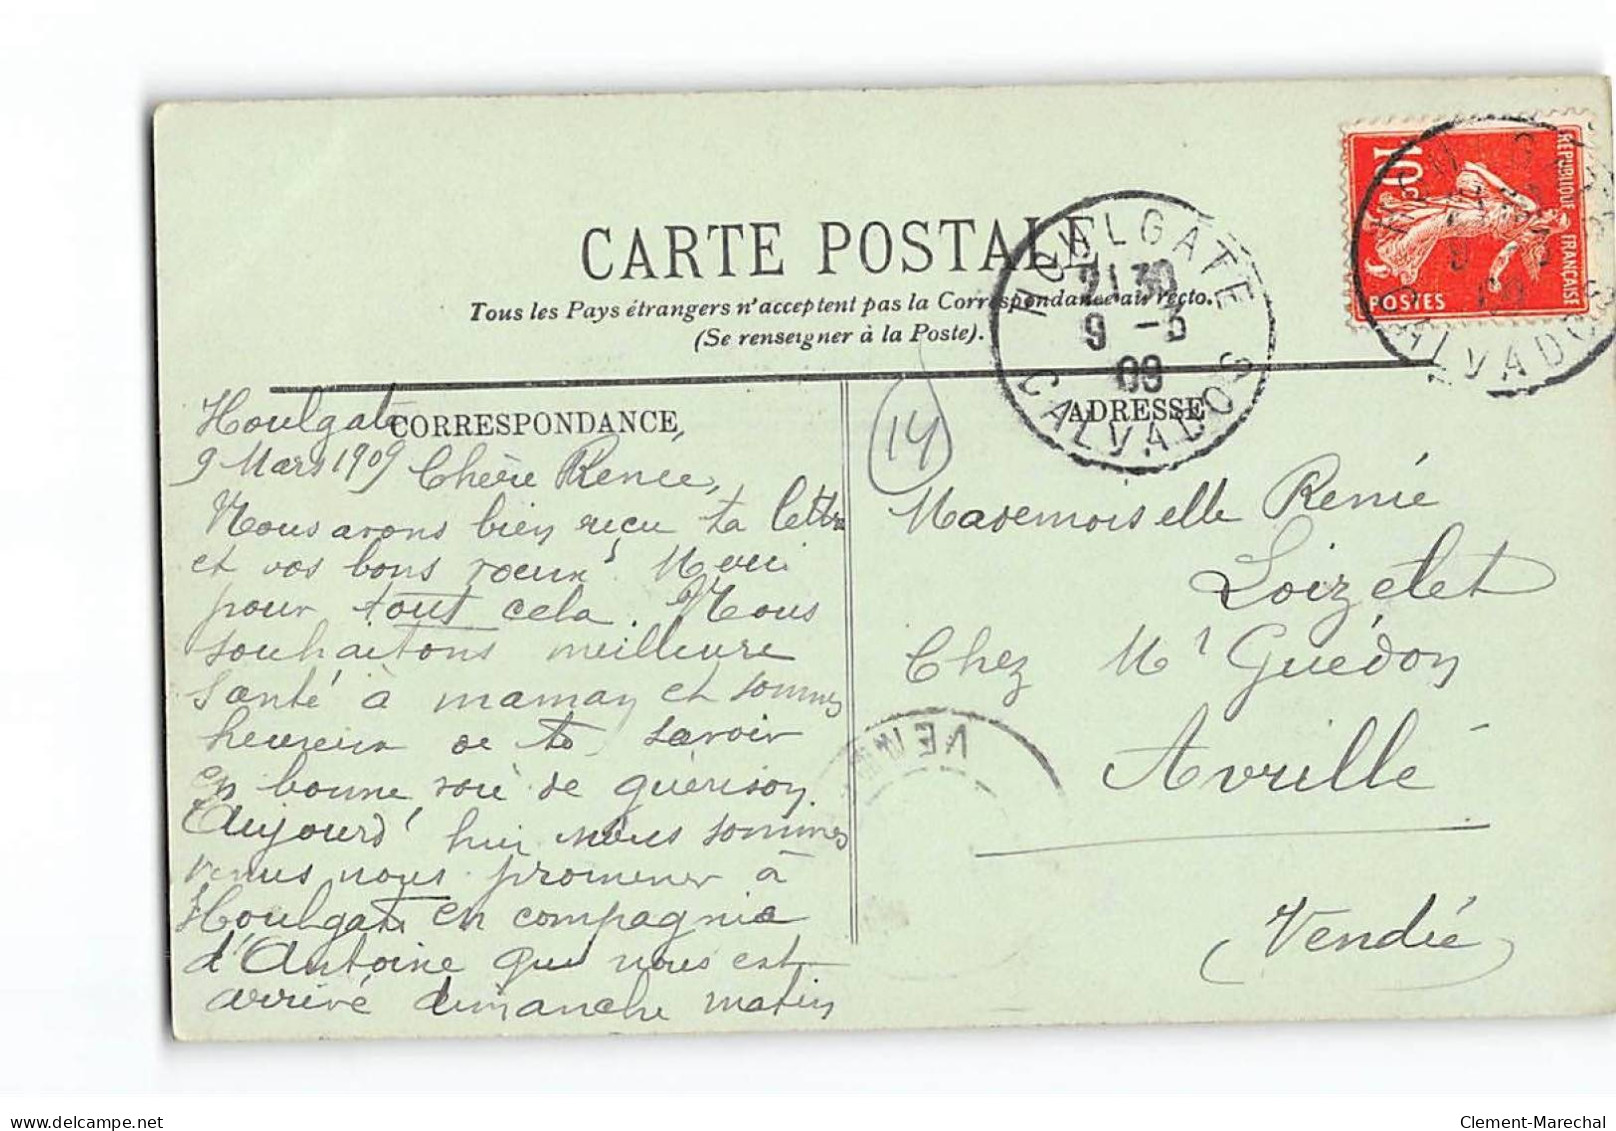 CARTE POSTALE
Tous les Pays étrangers n'acceptent pas la Correspondance au recto.
(Se renseigner à la Poste).
HOULGATE
21 30
9 -3
09
CALVADOS
10c
REPUBLIQUE FRANÇAISE
POSTES
CALVADOS
CORRESPONDANCE
ADRESSE
14
Houlgate
9 Mars 1909 Chère Renée,
Nous avons bien reçu ta lettre
et vos bons voeux. Merci
pour tout cela. Nous
souhaitons meilleure
santé à maman et sommes
heureux de te savoir
en bonne voie de guérison.
Aujourd'hui nous sommes
venus nous promener à
Houlgate en compagnie
d'Antoine qui nous est
arrivé dimanche matin
Mademoiselle Renée
Loizelet
Chez Mr Guédon
Avrillé
Vendée
Clement-Marechal
delcampe.net